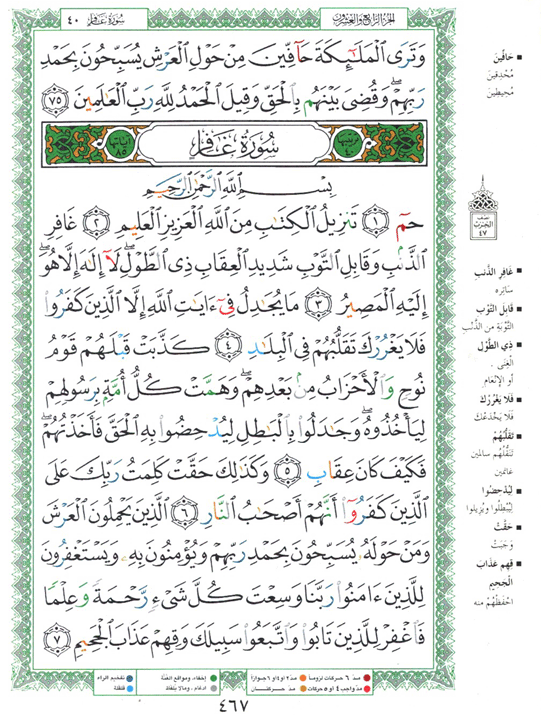 الجزء الرابع والعشرون
سورة غافر ٤٠
وَتَرَى ٱلْمَلَٰٓئِكَةَ حَآفِّينَ مِنْ حَوْلِ ٱلْعَرْشِ يُسَبِّحُونَ بِحَمْدِ
رَبِّهِمْ ۖ وَقُضِىَ بَيْنَهُم بِٱلْحَقِّ وَقِيلَ ٱلْحَمْدُ لِلَّهِ رَبِّ ٱلْعَٰلَمِينَ ٧٥
ترتيبها ٤٠
سُورَةُ غَافِرٍ
آياتها ٨٥
بِسْمِ ٱللَّهِ ٱلرَّحْمَٰنِ ٱلرَّحِيمِ
حمٓ ١ تَنزِيلُ ٱلْكِتَٰبِ مِنَ ٱللَّهِ ٱلْعَزِيزِ ٱلْعَلِيمِ ٢ غَافِرِ
ٱلذَّنۢبِ وَقَابِلِ ٱلتَّوْبِ شَدِيدِ ٱلْعِقَابِ ذِى ٱلطَّوْلِ ۖ لَآ إِلَٰهَ إِلَّا هُوَ ۖ
إِلَيْهِ ٱلْمَصِيرُ ٣ مَا يُجَٰدِلُ فِىٓ ءَايَٰتِ ٱللَّهِ إِلَّا ٱلَّذِينَ كَفَرُوا۟
فَلَا يَغْرُرْكَ تَقَلُّبُهُمْ فِى ٱلْبِلَٰدِ ٤ كَذَّبَتْ قَبْلَهُمْ قَوْمُ
نُوحٍ وَٱلْأَحْزَابُ مِنۢ بَعْدِهِمْ ۖ وَهَمَّتْ كُلُّ أُمَّةٍۭ بِرَسُولِهِمْ
لِيَأْخُذُوهُ ۖ وَجَٰدَلُوا۟ بِٱلْبَٰطِلِ لِيُدْحِضُوا۟ بِهِ ٱلْحَقَّ فَأَخَذْتُهُمْ ۖ
فَكَيْفَ كَانَ عِقَابِ ٥ وَكَذَٰلِكَ حَقَّتْ كَلِمَتُ رَبِّكَ عَلَى
ٱلَّذِينَ كَفَرُوٓا۟ أَنَّهُمْ أَصْحَٰبُ ٱلنَّارِ ٦ ٱلَّذِينَ يَحْمِلُونَ ٱلْعَرْشَ
وَمَنْ حَوْلَهُۥ يُسَبِّحُونَ بِحَمْدِ رَبِّهِمْ وَيُؤْمِنُونَ بِهِۦ وَيَسْتَغْفِرُونَ
لِلَّذِينَ ءَامَنُوا۟ رَبَّنَا وَسِعْتَ كُلَّ شَىْءٍ رَّحْمَةً وَعِلْمًا
فَٱغْفِرْ لِلَّذِينَ تَابُوا۟ وَٱتَّبَعُوا۟ سَبِيلَكَ وَقِهِمْ عَذَابَ ٱلْجَحِيمِ ٧
حَافِّينَ
مُحْدِقِينَ
مُحِيطِينَ
نصف
الحزب
٤٧
غَافِرِ الذَّنبِ
سَاتِرِه
قَابِلِ التَّوْبِ
التَّوْبَةِ من الذَّنْبِ
ذِي الطَّوْلِ
الْغِنَى
أو الإِنْعَامِ
فَلَا يَغْرُرْكَ
فَلَا يَخْدَعْكَ
تَقَلُّبُهُمْ
تَنَقُّلُهُم سالمين
غانمين
لِيُدْحِضُوا
لِيُبْطِلُوا ويُزِيلُوا
حَقَّتْ
وَجَبَتْ
قِهِم عَذَابَ
الْجَحِيمِ
احْفَظْهُمْ منه
مدّ ٦ حركات لزوماً
مدّ ٢ أو ٤ أو ٦ جوازاً
إخفاء، ومواقع الغنّة
تفخيم الراء
مدّ واجب ٤ أو ٥ حركات
مدّ حركتان
ادغام، وما لا يُلفظ
قلقلة
٤٦٧